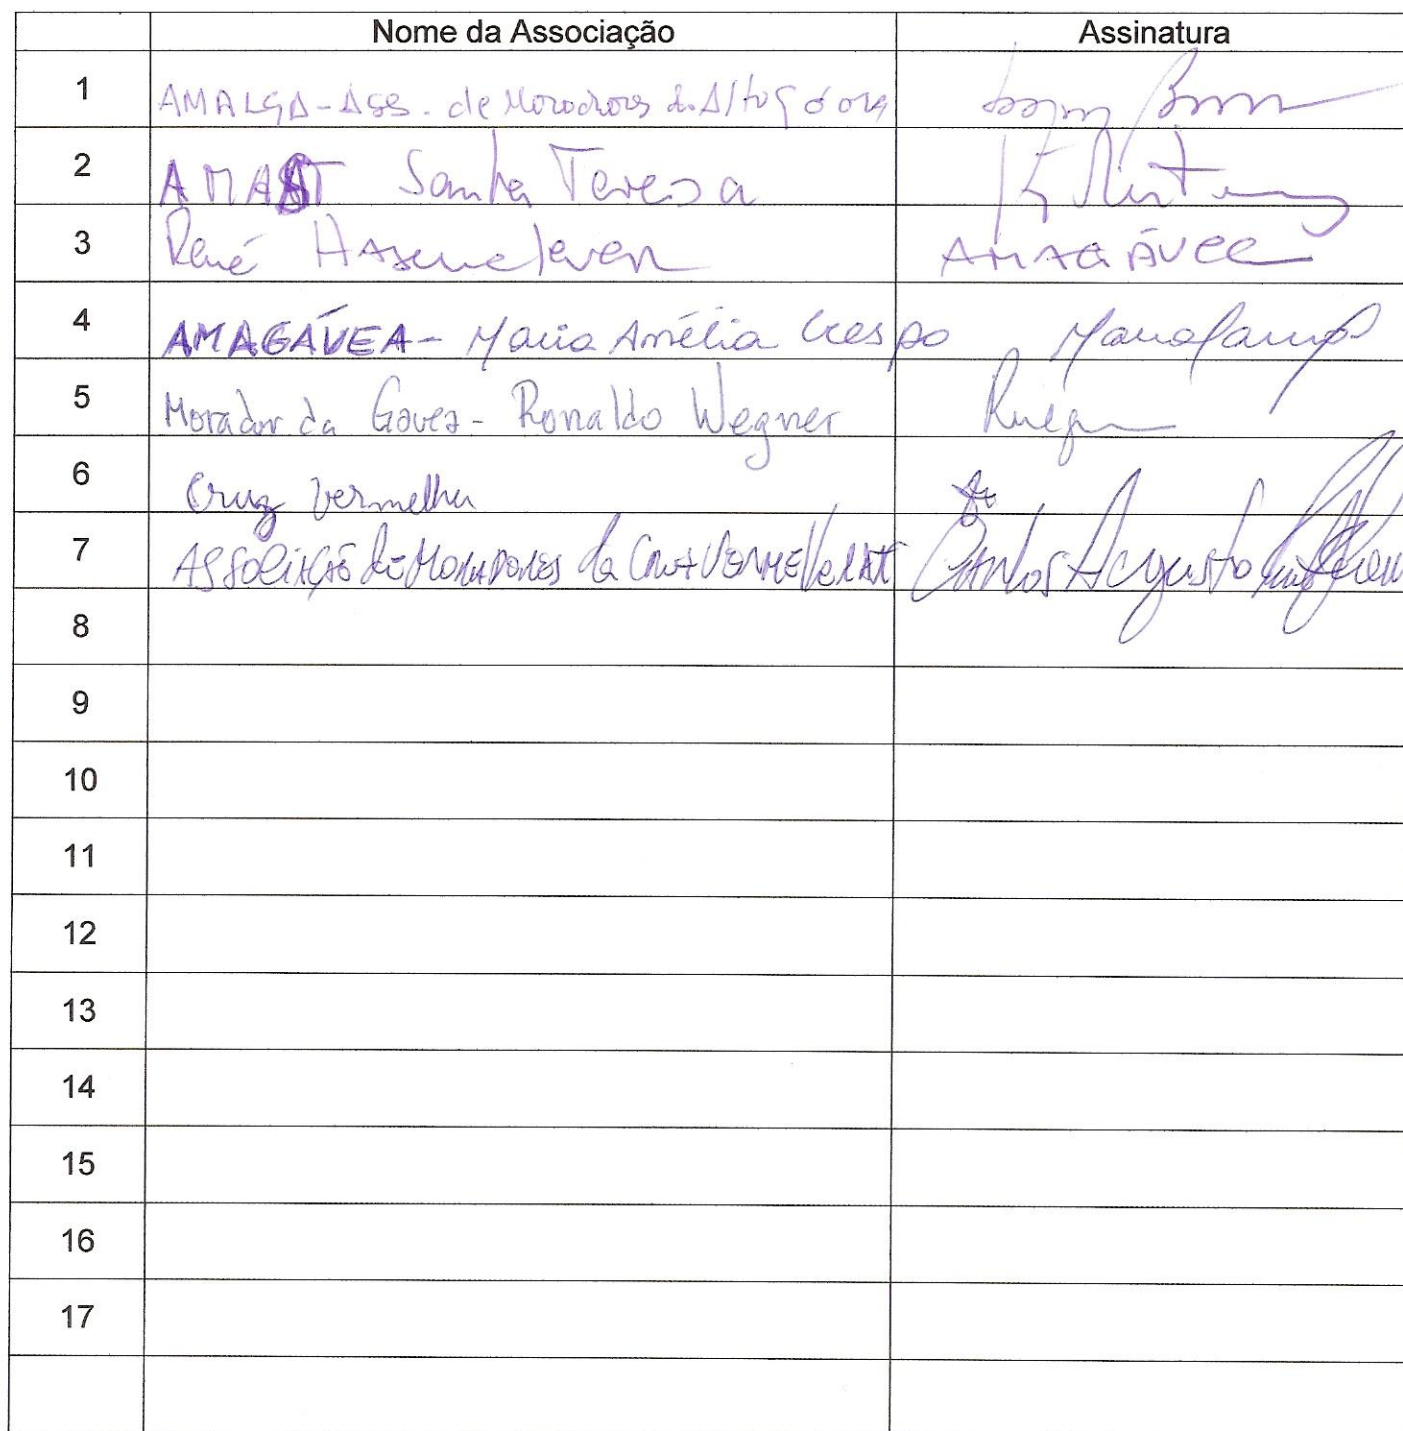 Nome da Associação Assinatura
1 AMALGA - Ass. de Moradores do Alto Gávea
2 AMAST Santa Teresa
3 René Hasenclever AMAGÁVEA
4 AMAGÁVEA - Maria Amélia Crespo
5 Morador da Gávea - Ronaldo Wegner
6 Cruz Vermelha
7 Associação de Moradores da Cruz Vermelha Carlos Augusto
8
9
10
11
12
13
14
15
16
17